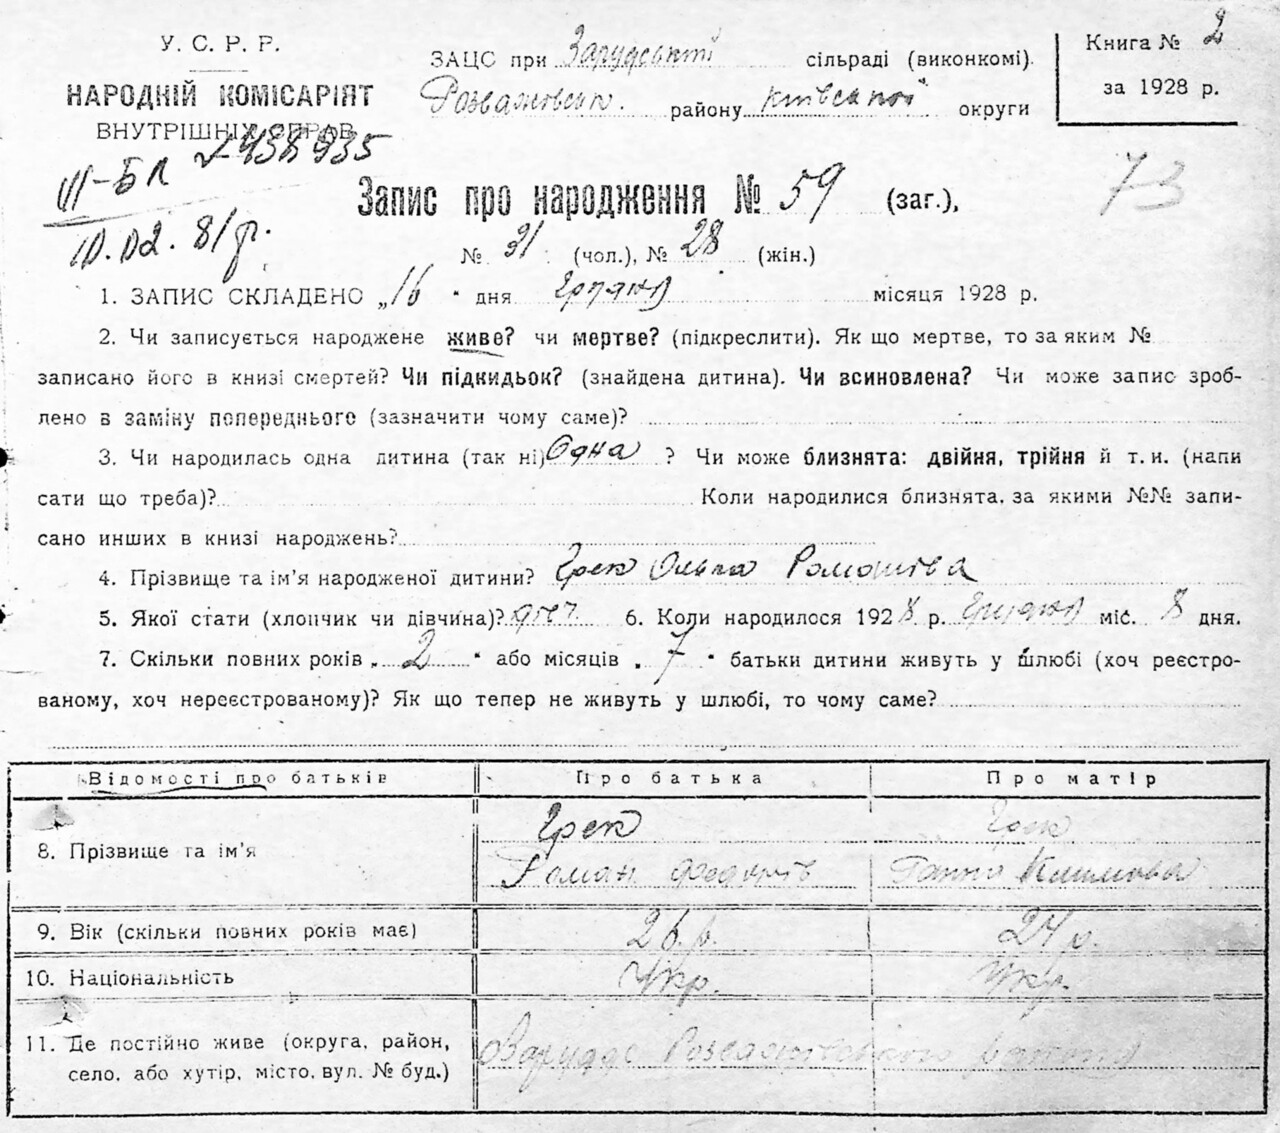 У. С. Р. Р.
НАРОДНІЙ КОМІСАРІЯТ
ВНУТРІШНІХ СПРАВ
ЗАЦС при Зарудській сільраді (виконкомі).
Розважівськ. району Київської округи
Книга № 2
за 1928 р.
III-БЛ 438935
10.02.81р.
73
Запис про народження № 59 (заг.),
№ 31 (чол.), № 28 (жін.)
1. ЗАПИС СКЛАДЕНО „16" дня Грудня місяця 1928 р.
2. Чи записується народжене живе? чи мертве? (підкреслити). Як що мертве, то за яким №
записано його в книзі смертей? Чи підкидьок? (знайдена дитина). Чи всиновлена? Чи може запис зроб-
лено в заміну попереднього (зазначити чому саме)?
3. Чи народилась одна дитина (так ні) Одна ? Чи може близнята: двійня, трійня й т. и. (напи
сати що треба)? Коли народилися близнята, за якими №№ запи-
сано инших в книзі народжень?
4. Прізвище та ім'я народженої дитини? Грек Ольга Романова
5. Якої стати (хлопчик чи дівчина)? дівч. 6. Коли народилося 1928 р. Грудня міс. 8 дня.
7. Скільки повних років „2" або місяців „7" батьки дитини живуть у шлюбі (хоч реєстро-
ваному, хоч нереєстрованому)? Як що тепер не живуть у шлюбі, то чому саме?
Відомості про батьків Про батька Про матір
8. Прізвище та ім'я Грек Грек
Роман Федотів Ганна Климова
9. Вік (скільки повних років має) 26 р. 24 р.
10. Національність Укр. Укр.
11. Де постійно живе (округа, район,
село, або хутір, місто, вул. № буд.) Заруддє Розважівського района